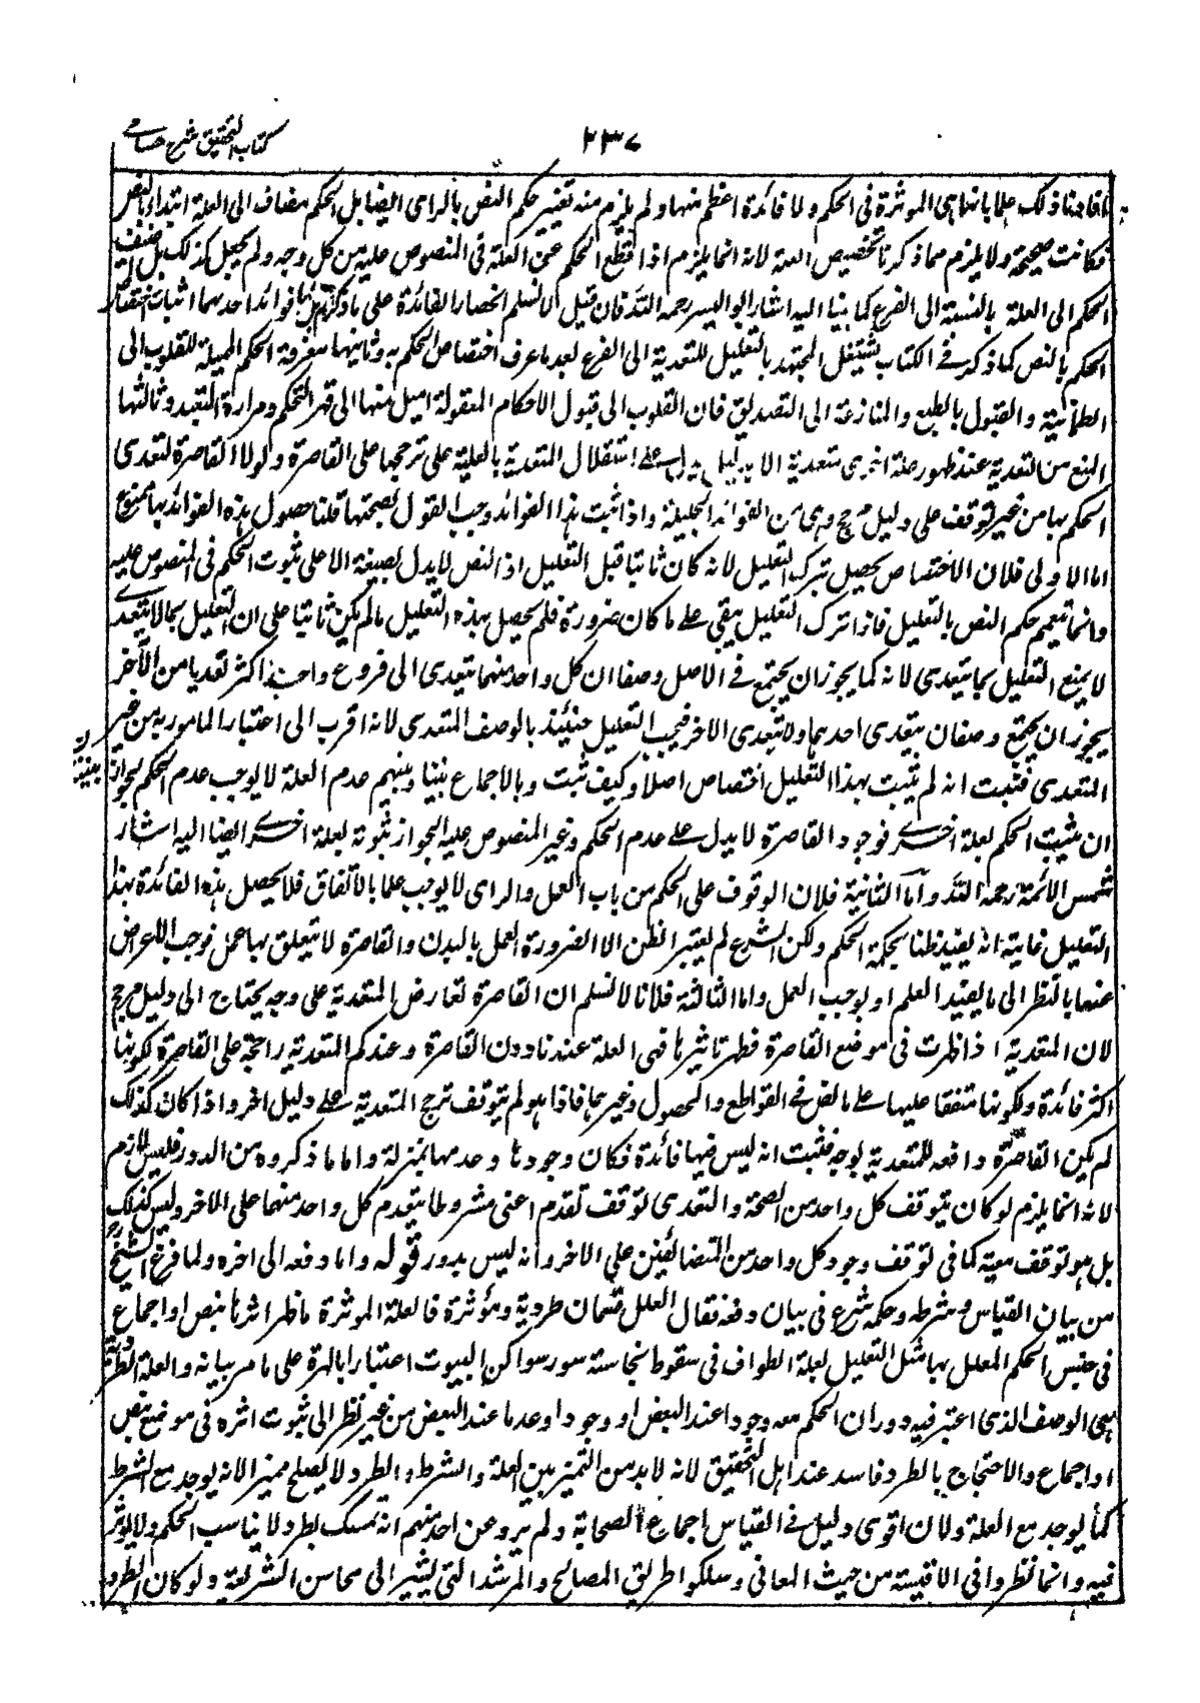 كتاب التحقيق شرح حسامي
٢٣٧
فافادتنا ذلك علما بانها هي الموثرة في الحكم ولا فائدة اعظم منها ولم يلزم منه تغيير حكم النص بالراى ايضا بل الحكم مضاف الى العلة ابتداء بالنص
فكانت صحيحة ولا يلزم مما ذكرنا تخصيص العلة لانه انما يلزم اذا انقطع الحكم عن العلة في المنصوص عليه من كل وجه ولم يجعل كذلك بل اضيف
الحكم الى العلة بالنسبة الى الفرع كما بينا اليه اشار ابو اليسر رحمه الله فان قيل لا نسلم انحصار الفائدة على ما ذكرتم بل لها فوائد احدهما اثبات اختصاص
الحكم بالنص كما ذكر في الكتاب يشتغل المجتهد بالتعليل للتعدية الى الفرع بعد ما عرف اختصاص الحكم به وثانيتها معرفة الحكم المميلة للقلوب الى
الطمانينة والقبول بالطبع والمنازعة الى التصديق فان القلوب الى قبول الاحكام المعقولة اميل منها الى قهر التحكم ومرارة التعبد وثالثتها
المنع من التعدية عند ظهور علة اخرى متعدية الا بدليل يدل على استقلال المتعدية بالعلية على ترجحها على القاصرة ولولا القاصرة لتعدى
الحكم بها من غير توقف على دليل مرجح وهي من الفوائد الجليلة واذا ثبت هذا الفوائد وجب القول بصحتها قلنا حصول هذه الفوائد بها ممنوع
اما الاولى فلان الاختصاص يحصل بترك التعليل لانه كان ثابتا قبل التعليل اذ النص لا يدل بصيغة الا على ثبوت الحكم في المنصوص عليه
وانما تعميم حكم النص بالتعليل فاذا ترك التعليل يبقى على ما كان ضرورة فلم يحصل بهذه التعليل ما لم يكن ثابتا على ان التعليل بما لا يتعدى
لا يمنع التعليل بما يتعدى لانه كما يجوز ان يجتمع في الاصل وصفا ان كل واحد منهما يتعدى الى فروع واحدهما اكثر تعديا من الآخر
يجوز ان يجتمع وصفان يتعدى احدهما ولا يتعدى الاخر فيجب التعليل حينئذ بالوصف المتعدى لانه اقرب الى اعتبار المامور به من غير
المتعدى فثبت انه لم يثبت بهذا التعليل اختصاص اصلا وكيف ثبت وبالاجماع بيننا وبينهم عدم العلة لا يوجب عدم الحكم لجواز
ان يثبت الحكم لعلة اخرى فوجود القاصرة لا يدل على عدم الحكم وغير المنصوص عليه الجواز ثبوته لعلة اخرى ايضا اليه اشار
شمس الائمة رحمه الله واما الثانية فلان الوقوف على الحكم من باب العمل والراى لا يوجب علما بالاتفاق فلا يحصل هذه الفائدة بهذا
التعليل غايته انه يفيد ظنا بحكمة الحكم ولكن الشرع لم يعتبر الظن الا لضرورة العمل بالبدن والقاصرة لا يتعلق بها عمل فوجب الاعراض
عنها بالنظر الى ما يفيد العلم او يوجب العمل واما الثالثة فلانا لا نسلم ان القاصرة تعارض المتعدية على وجه يحتاج الى دليل مرجح
لان المتعدية اذا ظهرت في موضع القاصرة فظهر تاثيرها فهى العلة عندنا دون القاصرة وعندكم المتعدية راجحة على القاصرة لكونها
اكثر فائدة ولكونها متفقا عليها على ما نص في القواطع والمحصول وغيرهما فاذا هو لم يتوقف ترجح المتعدية على دليل اخر واذا كان كذلك
لم يكن القاصرة دافعه للمتعدية بوجه فثبت انه ليس فيها فائدة فكان وجودها وعدمها بمنزلة واما ما ذكروه من الدور فليس بلازم
لانه انما يلزم لو كان يتوقف كل واحد من الصحة والتعدى توقف تقدم اعنى مشروطا بتقدم كل واحد منهما على الاخر وليس كذلك
بل هو توقف معية كما في توقف وجود كل واحد من المتضائفين على الاخر وانه ليس بدور قوله واما دفعه الى اخره ولما فرغ الشيخ
من بيان القياس وشرطه وحكمه شرع في بيان دفعه فقال العلل قسمان طردية ومؤثرة فالعلة الموثرة ما ظهر اثرها بنص او اجماع
في جنس الحكم المعلل بها مثل التعليل بعلة الطواف في سقوط نجاسة سور سواكن البيوت اعتبارا بالهرة على ما مر بيانه والعلة الطردية
هى الوصف الذى اعتبر فيه دوران الحكم معه وجودا عند البعض او وجودا وعدما عند البعض من غير نظر الى ثبوت اثره في موضع بنص
او اجماع والاحتجاج بالطرد فاسد عند اهل التحقيق لانه لا بد من التميز بين العلة والشرط والطرد لا يصلح مميزا لانه يوجد مع الشرط
كما يوجد مع العلة ولان اقوى دليل في القياس اجماع الصحابة ولم يرو عن احد منهم انه تمسك بطرد لا يناسب الحكم ولا يوثر
فيه وانما نظروا في الاقيسة من حيث المعانى وسلكوا طريق المصالح والمرشد التى يشير الى محاسن الشريعة ولو كان الطرد